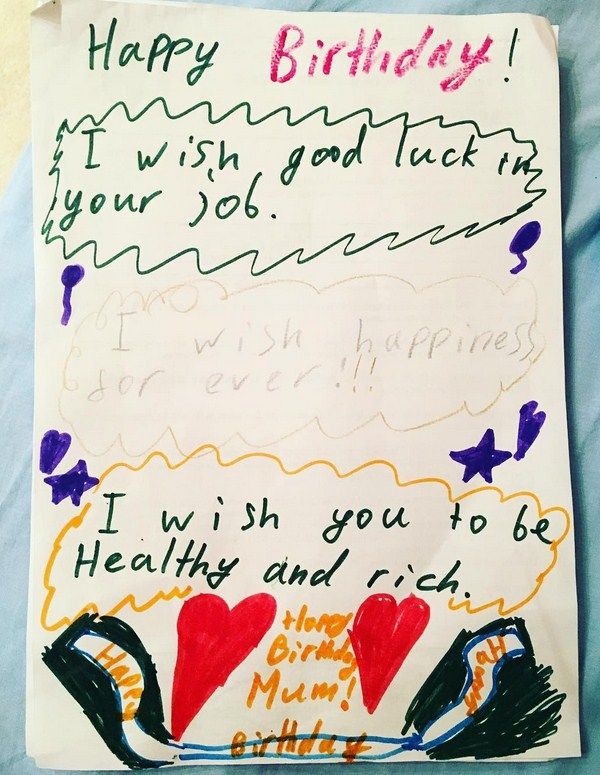 Happy Birthday!
I wish good luck in
your job.
I wish happiness
for ever!!!
I wish you to be
Healthy and rich.
Happy
Birthday
Mum!
Happy
Birthday